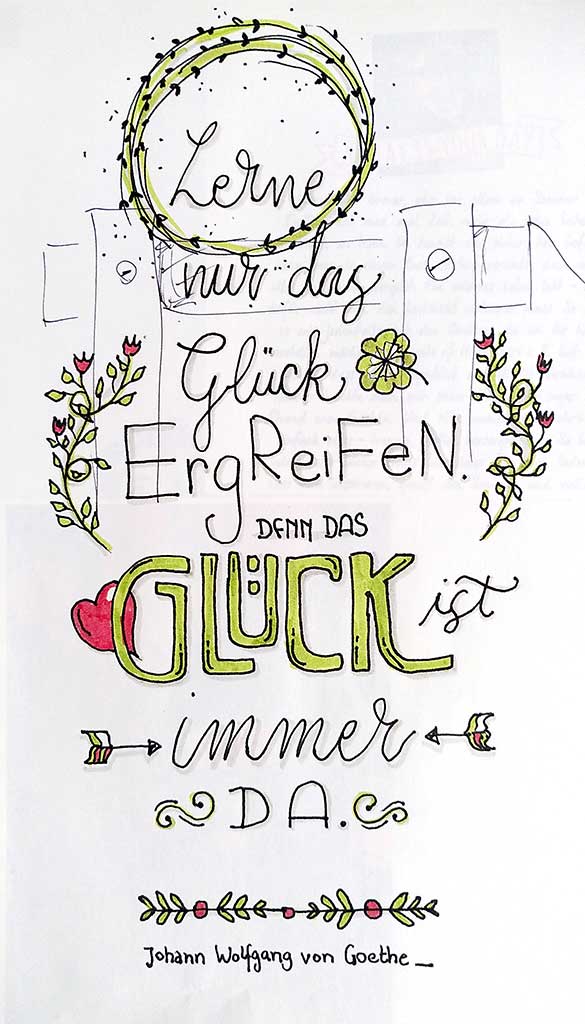 Lerne
nur das
Glück
ErgReiFeN.
DENN DAS
GLÜCK ist
immer
DA.
Johann Wolfgang von Goethe_